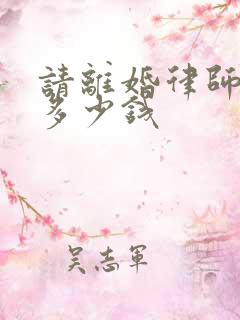 請離婚律師
多少錢
吴志軍